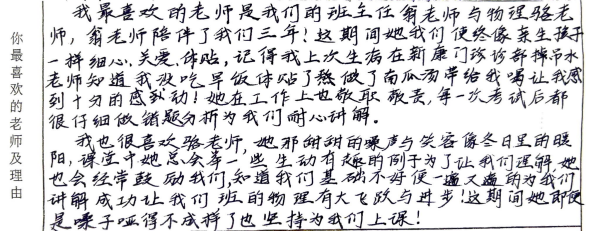 你最喜欢的老师及理由
我最喜欢的老师是我们的班主任翁老师与物理骆老
师，翁老师陪伴了我们三年！这期间她我们便终像亲生孩子
一样细心、关爱、体贴，记得我上次生病在新康门诊诊部掉吊水
老师知道我没吃早饭体贴了熬做了南瓜汤带给我喝让我感
到十分的感动！她在工作上也敬职敬责，每一次考试后都
很仔细做错题分析为我们耐心讲解。
我也很喜欢骆老师，她那甜甜的嗓声与笑容像冬日里的暖
阳，课堂中她总会举一些生动有趣的例子为了让我们理解，她
也会经常鼓励我们，知道我们基础不好便一遍又遍的为我们
讲解成功让我们班的物理有大飞跃与进步！这期间她即便
是嗓子哑得不成样了也坚持为我们上课！